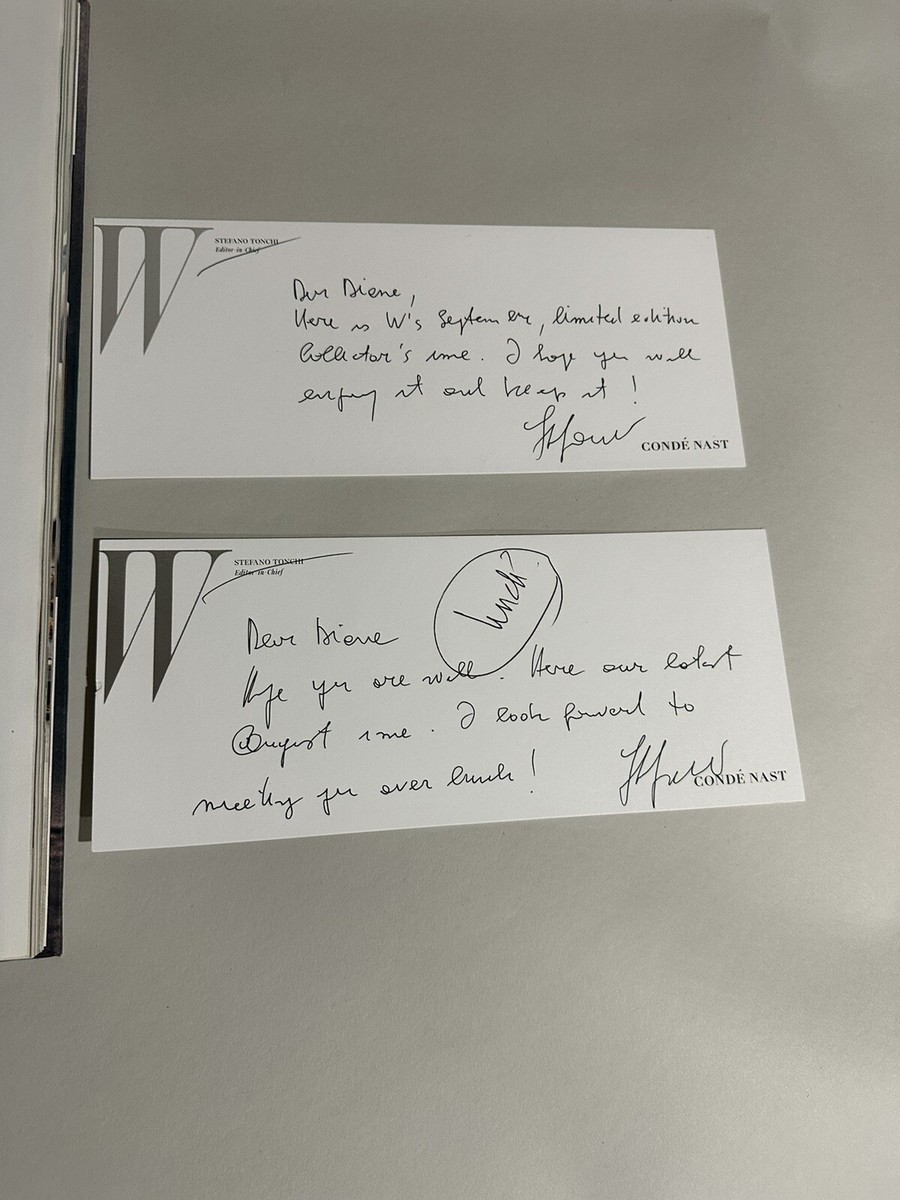 W
STEFANO TONCHI
Editor in Chief
Dear Diane,
Here is W's September, limited edition
Collector's issue. I hope you will
enjoy it and keep it!
Stefano
CONDÉ NAST
W
STEFANO TONCHI
Editor in Chief
lunch?
Dear Diane
Hope you are well. Here our latest
August issue. I look forward to
meeting you over lunch!
Stefano
CONDÉ NAST